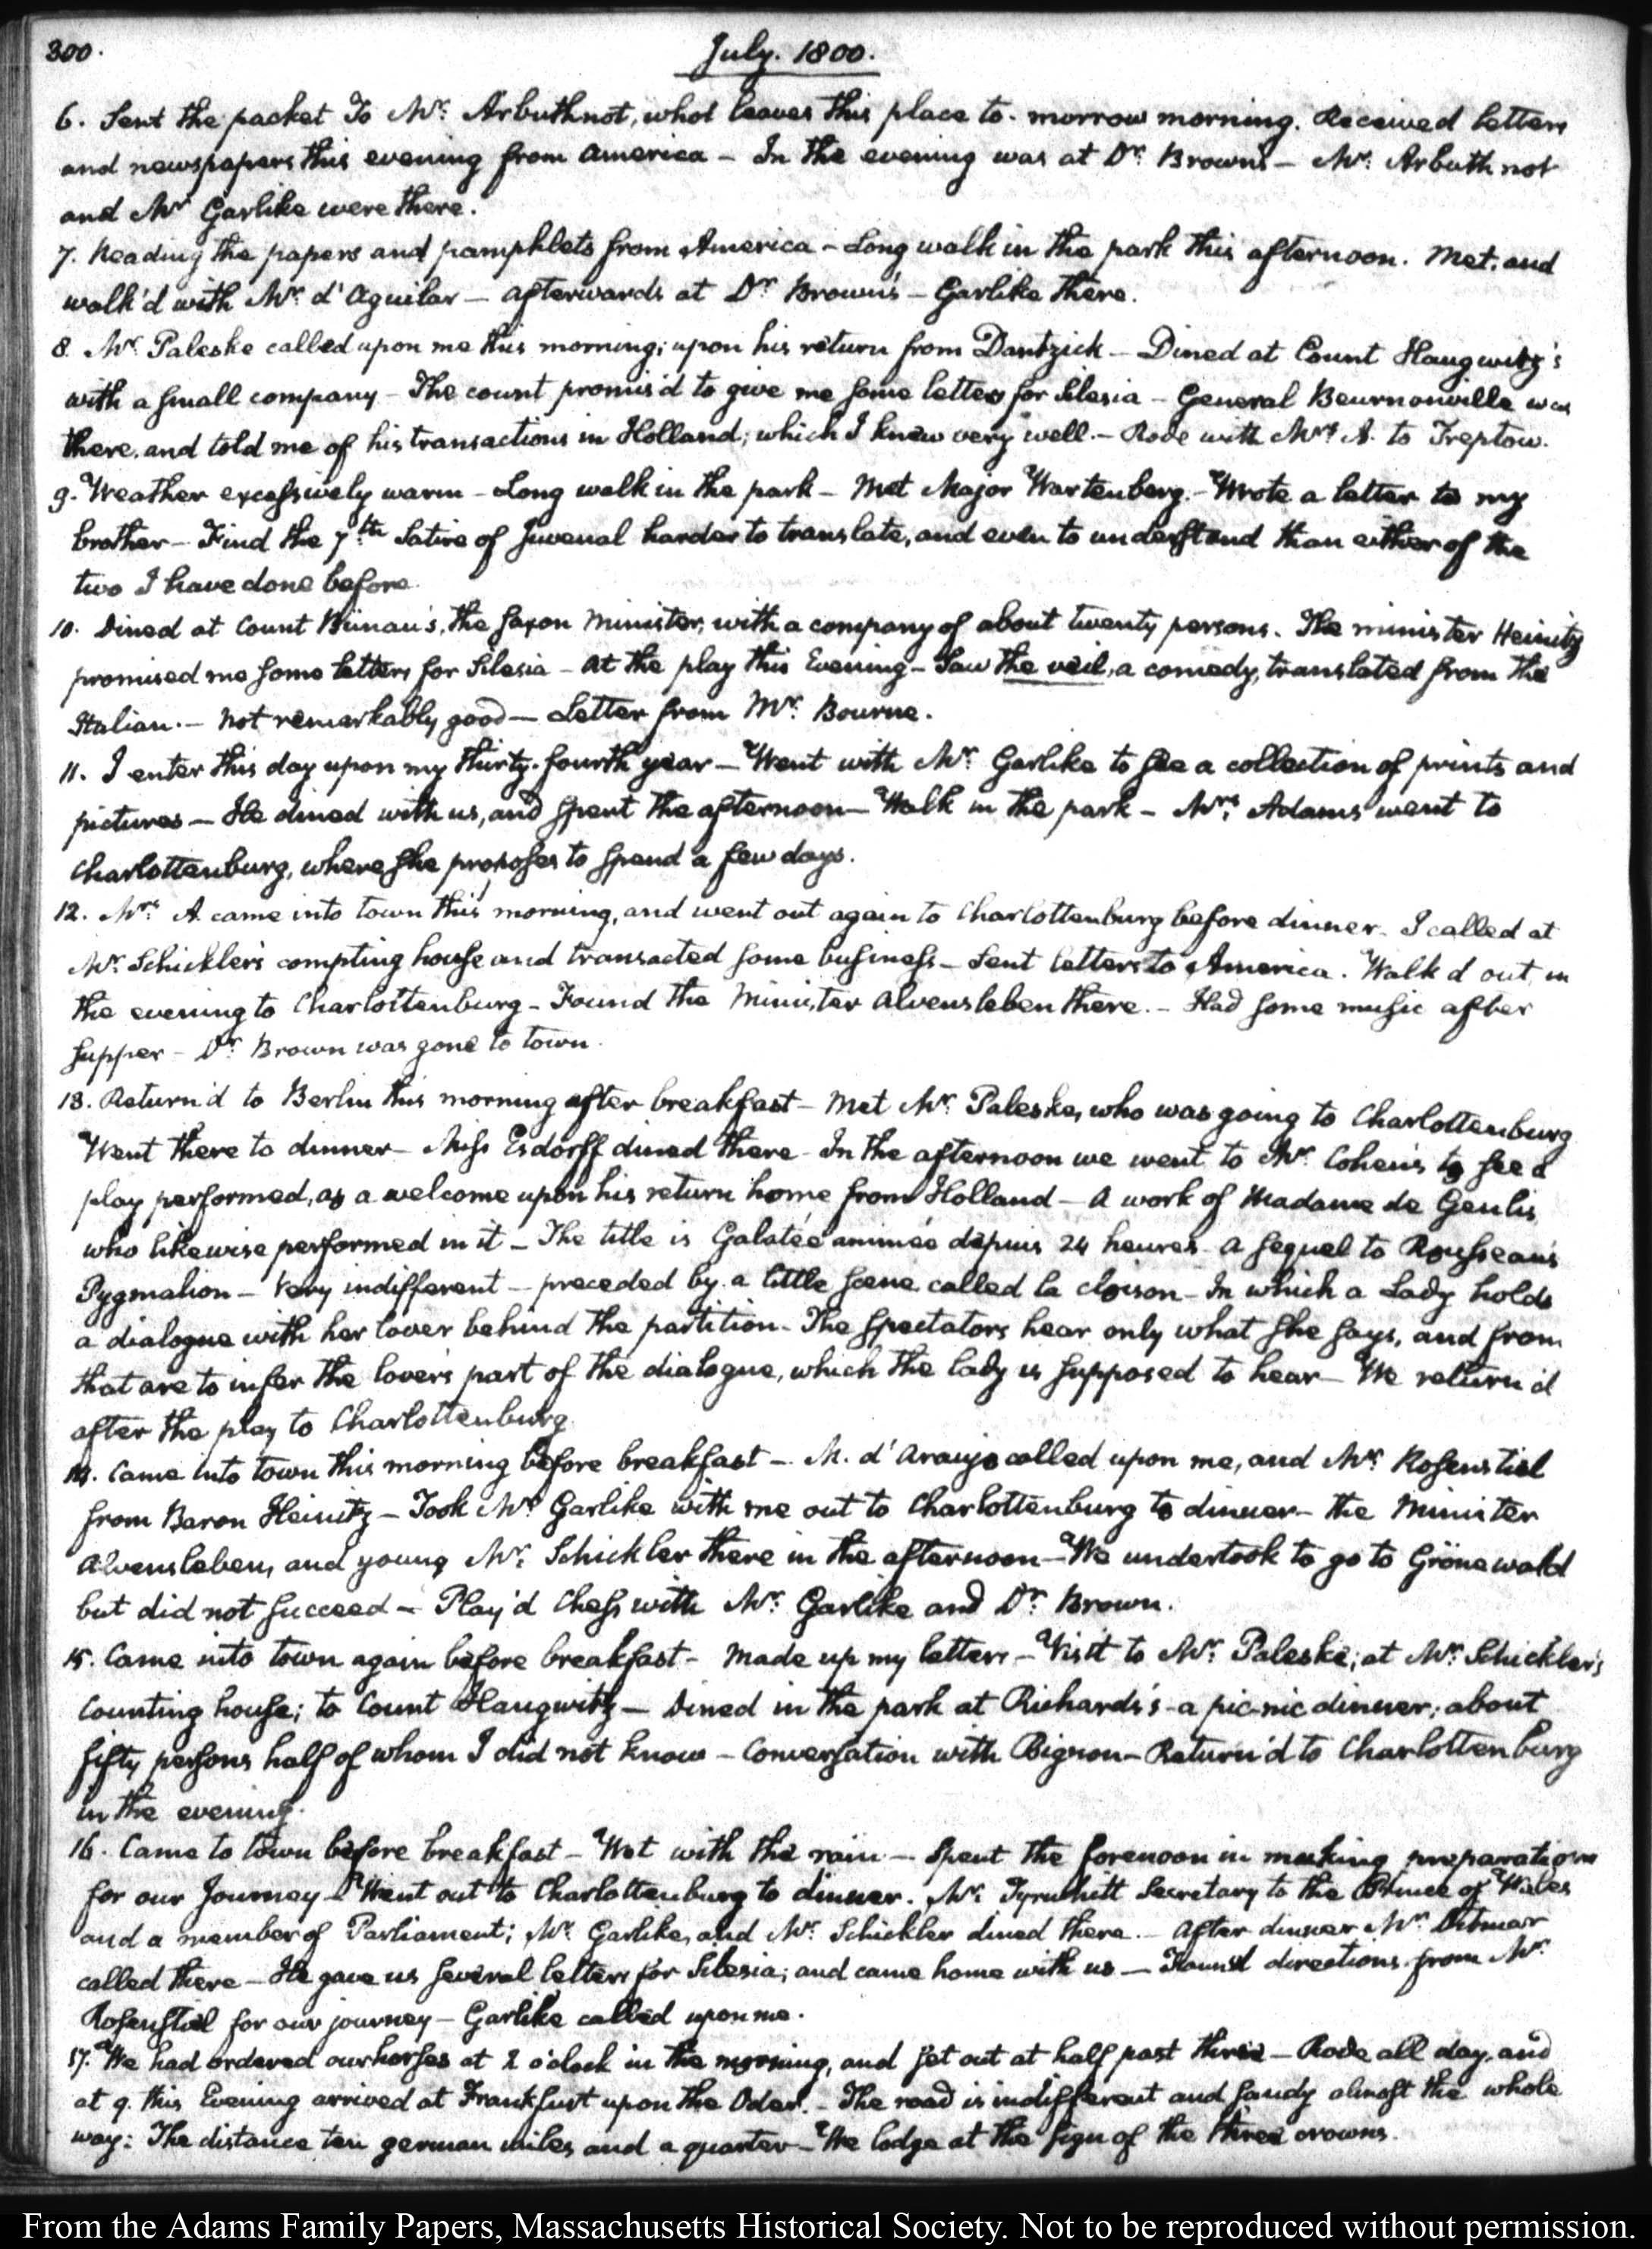 300.
July. 1800.
6. Sent the packet to Mr: Arbuthnot, who leaves this place to-morrow morning. Received letters
and newspapers this evening from America – In the evening was at Dr: Brown's – Mr: Arbuthnot
and Mr: Garlike were there.
7. Reading the papers and pamphlets from America – Long walk in the park this afternoon. Met, and
walk'd with Mr: d'Aguilar – afterwards at Dr: Brown's – Garlike there.
8. Mr: Paleske called upon me this morning; upon his return from Dantzick – Dined at Count Haugwitz's
with a small company – The count promis'd to give me some letters for Silesia – General Beurnonville was
there, and told me of his transactions in Holland; which I knew very well. – Rode with Mrs: A. to Treptow.
9. Weather excessively warm – Long walk in the park – Met Major Wartenberg. – Wrote a letter to my
brother – Find the 7th: Satire of Juvenal harder to translate, and even to understand than either of the
two I have done before.
10. Dined at Count Bünau's, the Saxon Minister, with a company of about twenty persons. The minister Heinitz
promised me some letters for Silesia – At the play this Evening – Saw the veil, a comedy, translated from the
Italian. – Not remarkably good – Letter from Mr: Bourne.
11. I enter this day upon my thirty-fourth year – Went with Mr: Garlike to see a collection of prints and
pictures – He dined with us, and spent the afternoon – Walk in the park – Mrs: Adams went to
Charlottenburg, where she proposes to spend a few days.
12. Mrs: A. came into town this morning, and went out again to Charlottenburg before dinner – I called at
Mr: Schickler's compting house and transacted some business – Sent letters to America. Walk'd out in
the evening to Charlottenburg – Found the Minister Alvensleben there. – Had some music after
supper – Dr: Brown was gone to town.
13. Return'd to Berlin this morning after breakfast – Met Mr: Paleske, who was going to Charlottenburg
Went there to dinner – Miss Esdorff dined there – In the afternoon we went to Mr: Cohen's to see a
play performed, as a welcome upon his return home from Holland – A work of Madame de Genlis
who likewise performed in it – The title is Galatée animée depuis 24 heures – a sequel to Rousseau's
Pygmalion – Very indifferent – preceded by a little scene called la cloison – In which a Lady holds
a dialogue with her lover behind the partition – The spectators hear only what she says, and from
that are to infer the lover's part of the dialogue, which the lady is supposed to hear – We return'd
after the play to Charlottenburg.
14. Came into town this morning before breakfast – M. d'Araujo called upon me, and Mr: Rosenstiel
from Baron Heinitz – Took Mr: Garlike with me out to Charlottenburg to dinner – the Minister
Alvensleben, and young Mr: Schickler there in the afternoon – We undertook to go to Grönewald
but did not succeed – Play'd Chess with Mr: Garlike and Dr: Brown.
15. Came into town again before breakfast – Made up my letters – Visit to Mr: Paleske; at Mr: Schickler's
Counting house; to Count Haugwitz – Dined in the park at Richards's – a pic-nic dinner; about
fifty persons half of whom I did not know – Conversation with Bignon – Return'd to Charlottenburg
in the evening.
16. Came to town before breakfast – Wet with the rain – Spent the forenoon in making preparations
for our Journey – Went out to Charlottenburg to dinner. Mr: Tyrwhitt Secretary to the Prince of Wales
and a member of Parliament; Mr: Garlike, and Mr: Schickler dined there. – After dinner Mr: Ditmar
called there – He gave us several letters for Silesia; and came home with us – Found directions from Mr:
Rosenstiel for our journey – Garlike called upon me.
17. We had ordered our horses at 2 o'clock in the morning, and set out at half past three – Rode all day, and
at 9. this Evening arrived at Frankfurt upon the Oder. – The road is indifferent and sandy almost the whole
way: The distance ten german miles and a quarter – We lodge at the sign of the three crowns.
From the Adams Family Papers, Massachusetts Historical Society. Not to be reproduced without permission.